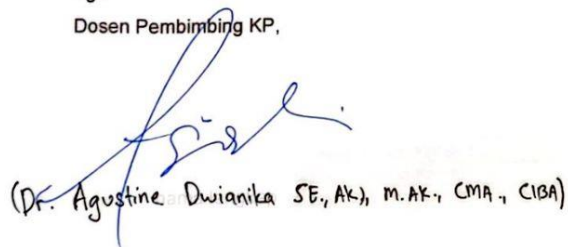 Dosen Pembimbing KP,
(Dr. Agustine Dwianika SE., AK), M.AK., CMA., CIBA)